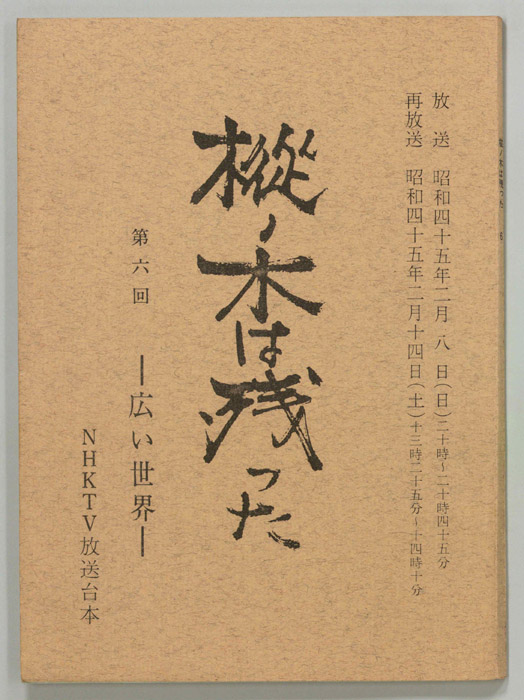 放送 昭和四十五年二月八日(日)二十時~二十時四十五分
再放送 昭和四十五年二月十四日(土)十三時二十五分~十四時十分
樅ノ木は残った
第六回
―広い世界―
NHKTV放送台本